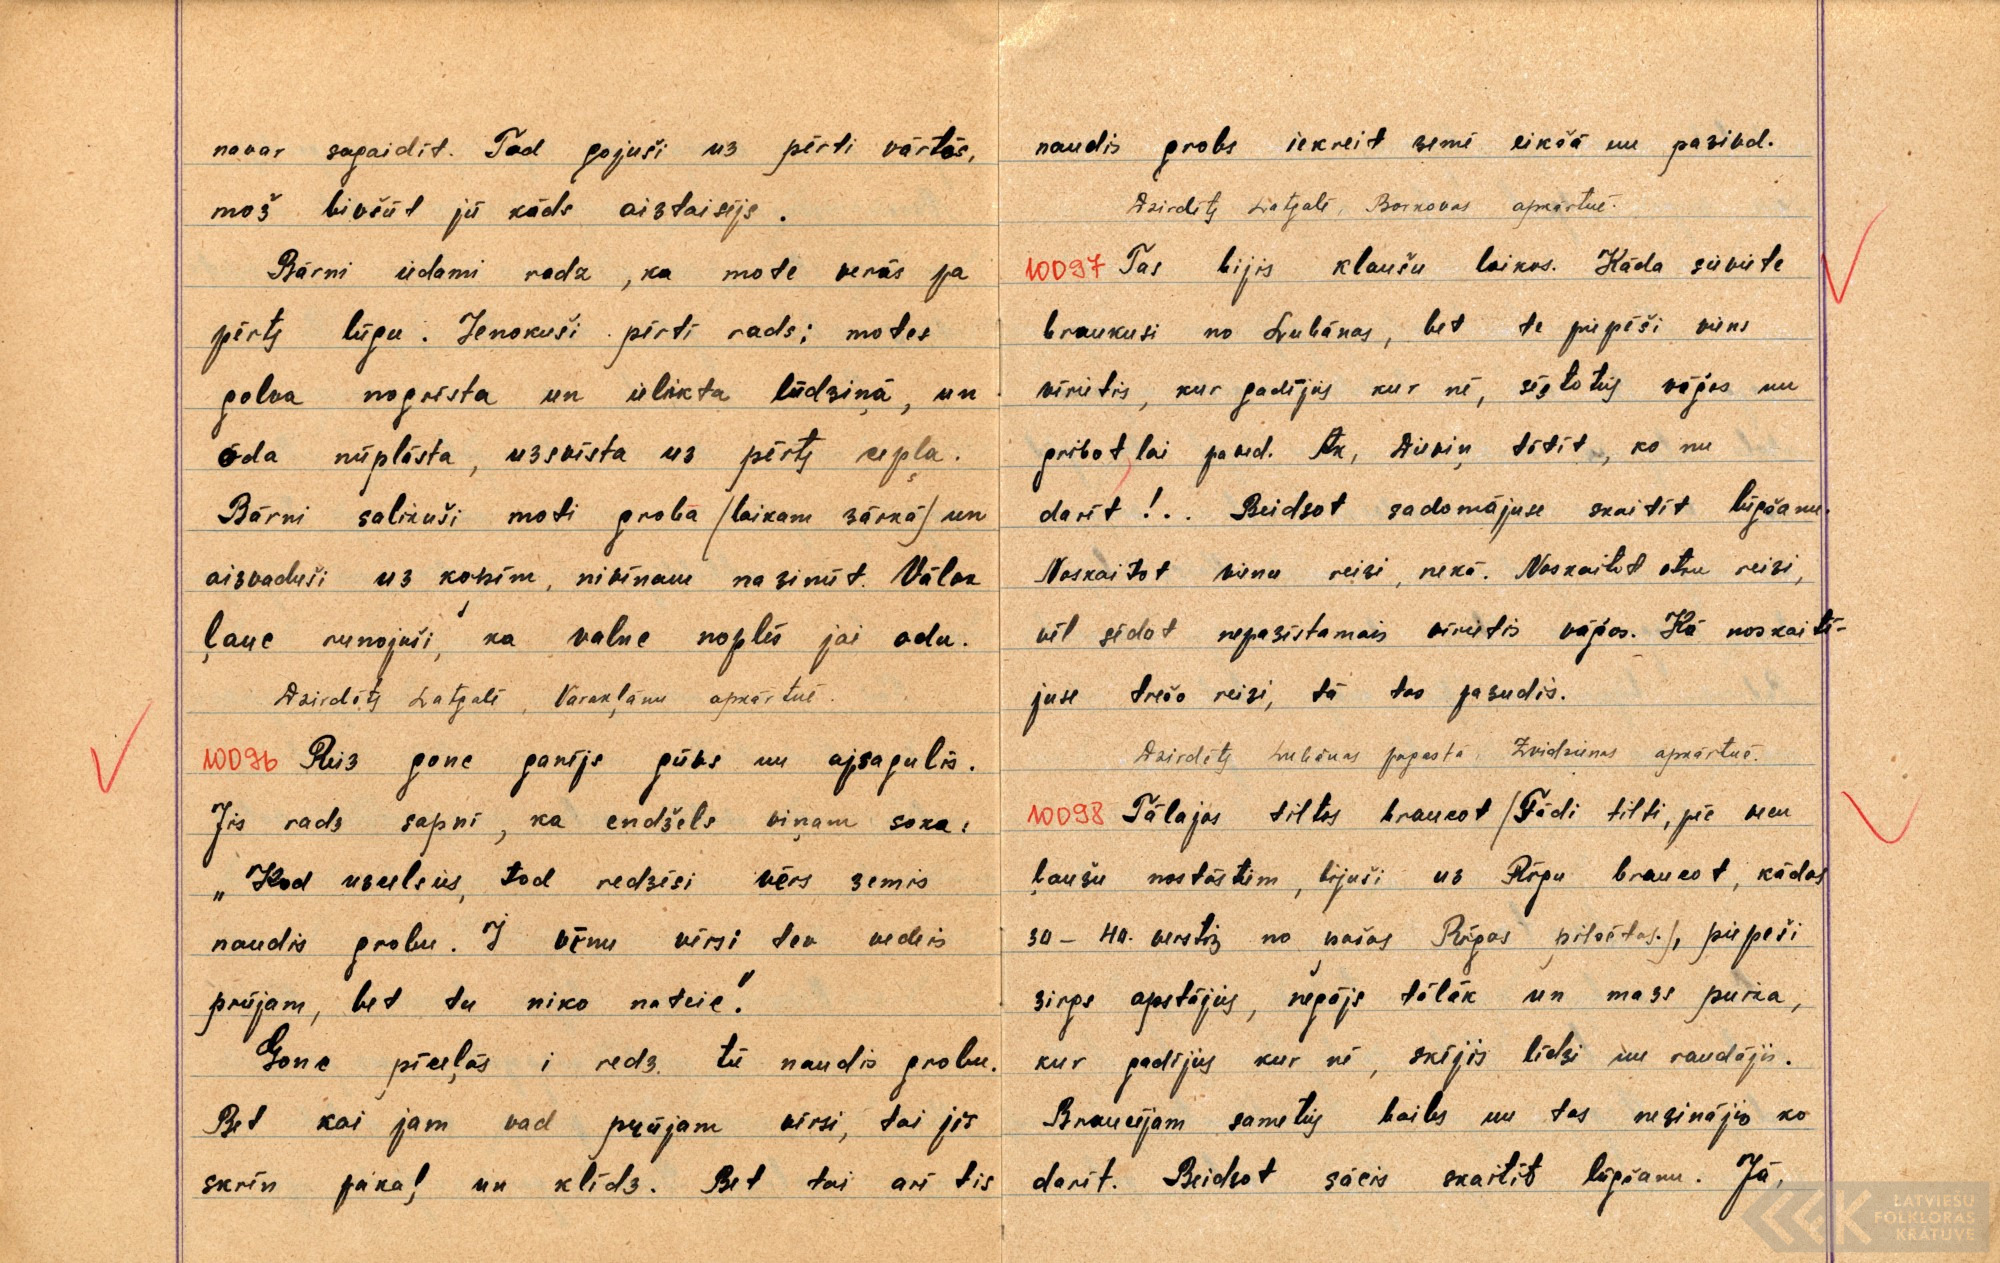 navar sagaidīt. Tad gojuši uz pērti vārtõs,
mož bivšūt jū kāds aiztaisījs.
Bārni īdami radz, ka mote verās pa
pērtş lūgu. Īenokuši pērtī rads: motes
golva nogrīsta un īlikta lūdziņā, un
öda nūplāsta, uzsvīsta uz pērtş cepļa.
Bārni salikuši moti grobā /laikam zārkā/ un
aizvaduši uz kopim, nivinam nazinūt. Vālok
ļauc runojuši, ka valne noplēs jai odu.
Dzirdēts Latgalē, Varakļānu apkārtnē.
10096 Reiz gone ganījs gūvs un apsagulis.
Jis radz sapnī, ka endžels viņam soka:
„Kod uzcelsūs, tod redzēsi vērs zemis
naudis grobu. I vēnu vērsi tev vedeis
prūjam, bet tu niko nateic."
Gone pīceļās i redz tū naudis grobu.
Bet kai jam vad prūjam vērsi, tai jis
skrīn pakaļ un klīdz. Bet tai arī tis
naudis grobs iekreit zemē eikšā un pazivd.
Dzirdēts Latgalē, Borkovas apkārtnē.
10097 Tas bijis klaušu laikos. Kāda sūvīte
braukusi no Lubānas, bet te piepēši viens
vīrietis, kur gadījies kur nē, sēstotīs vāģos un
gribot, lai paved. Ak, Dieviņ tētīt, ko nu
darīt!.. Beidzot sadomājuse skaitīt lūgšanu.
Noskaitot vienu reizi, nekā. Noskaitot otru reizi,
vēl sēdot nepazīstamais vīrietis vāģos. Kā noskaitī-
juse trešo reizi, tā tas pazudis.
Dzirdēts Lubānas pagasta Zvidzienas apkārtnē.
10098 Tālajos tiltos braucot /Tādi tilti, pēc vecu
ļaužu nostāstiem, bijuši uz Rīgu braucot, kādas
30 - 40. verstis no pašas Rīgas pilsētas./, piepeši
zirgs apstājies, negājs tālāk un mazs puika,
kur gadījies kur nē, skējis līdzi un raudājis.
Braucējam sametūs bailes un tas nezinājis ko
darīt. Beidzot sācis skaitīt lūgšanu. Jā,
LATVIEŠU
FOLKLORAS
KRĀTUVE